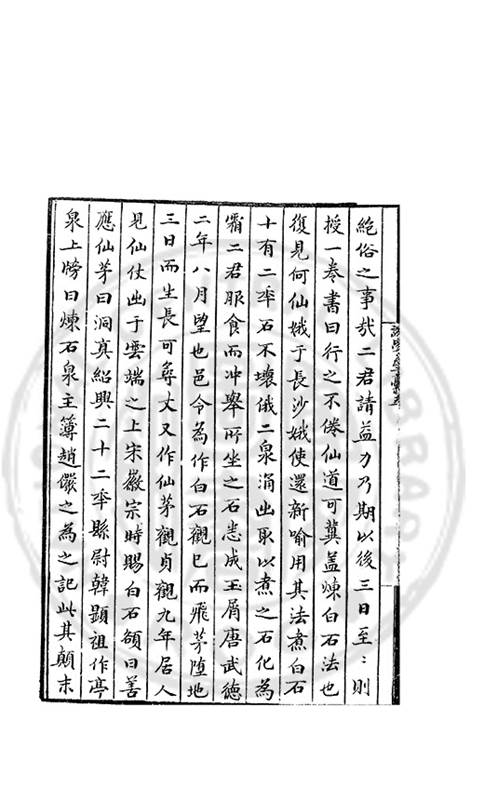 絶俗之事哉二君請益力乃期以後三日至:則
授一卷書曰行之不倦仙道可冀盖煉白石法也
復見何仙娥于長沙娥使還新喻用其法煮白石
十有二年石不壞俄二泉涌出取以煮之石化為
霜二君服食而冲舉所坐之石悉成玉屑唐武徳
二年八月望也邑令為作白石觀已而飛茅堕地
三日而生長可尋丈又作仙茅觀貞觀九年居人
見仙仗出于雲端之上宋徽宗時賜白石額曰善
應仙茅曰洞真紹興二十二年縣尉韓顕祖作亭
泉上牓曰煉石泉主簿趙儼之為之記此其顛末